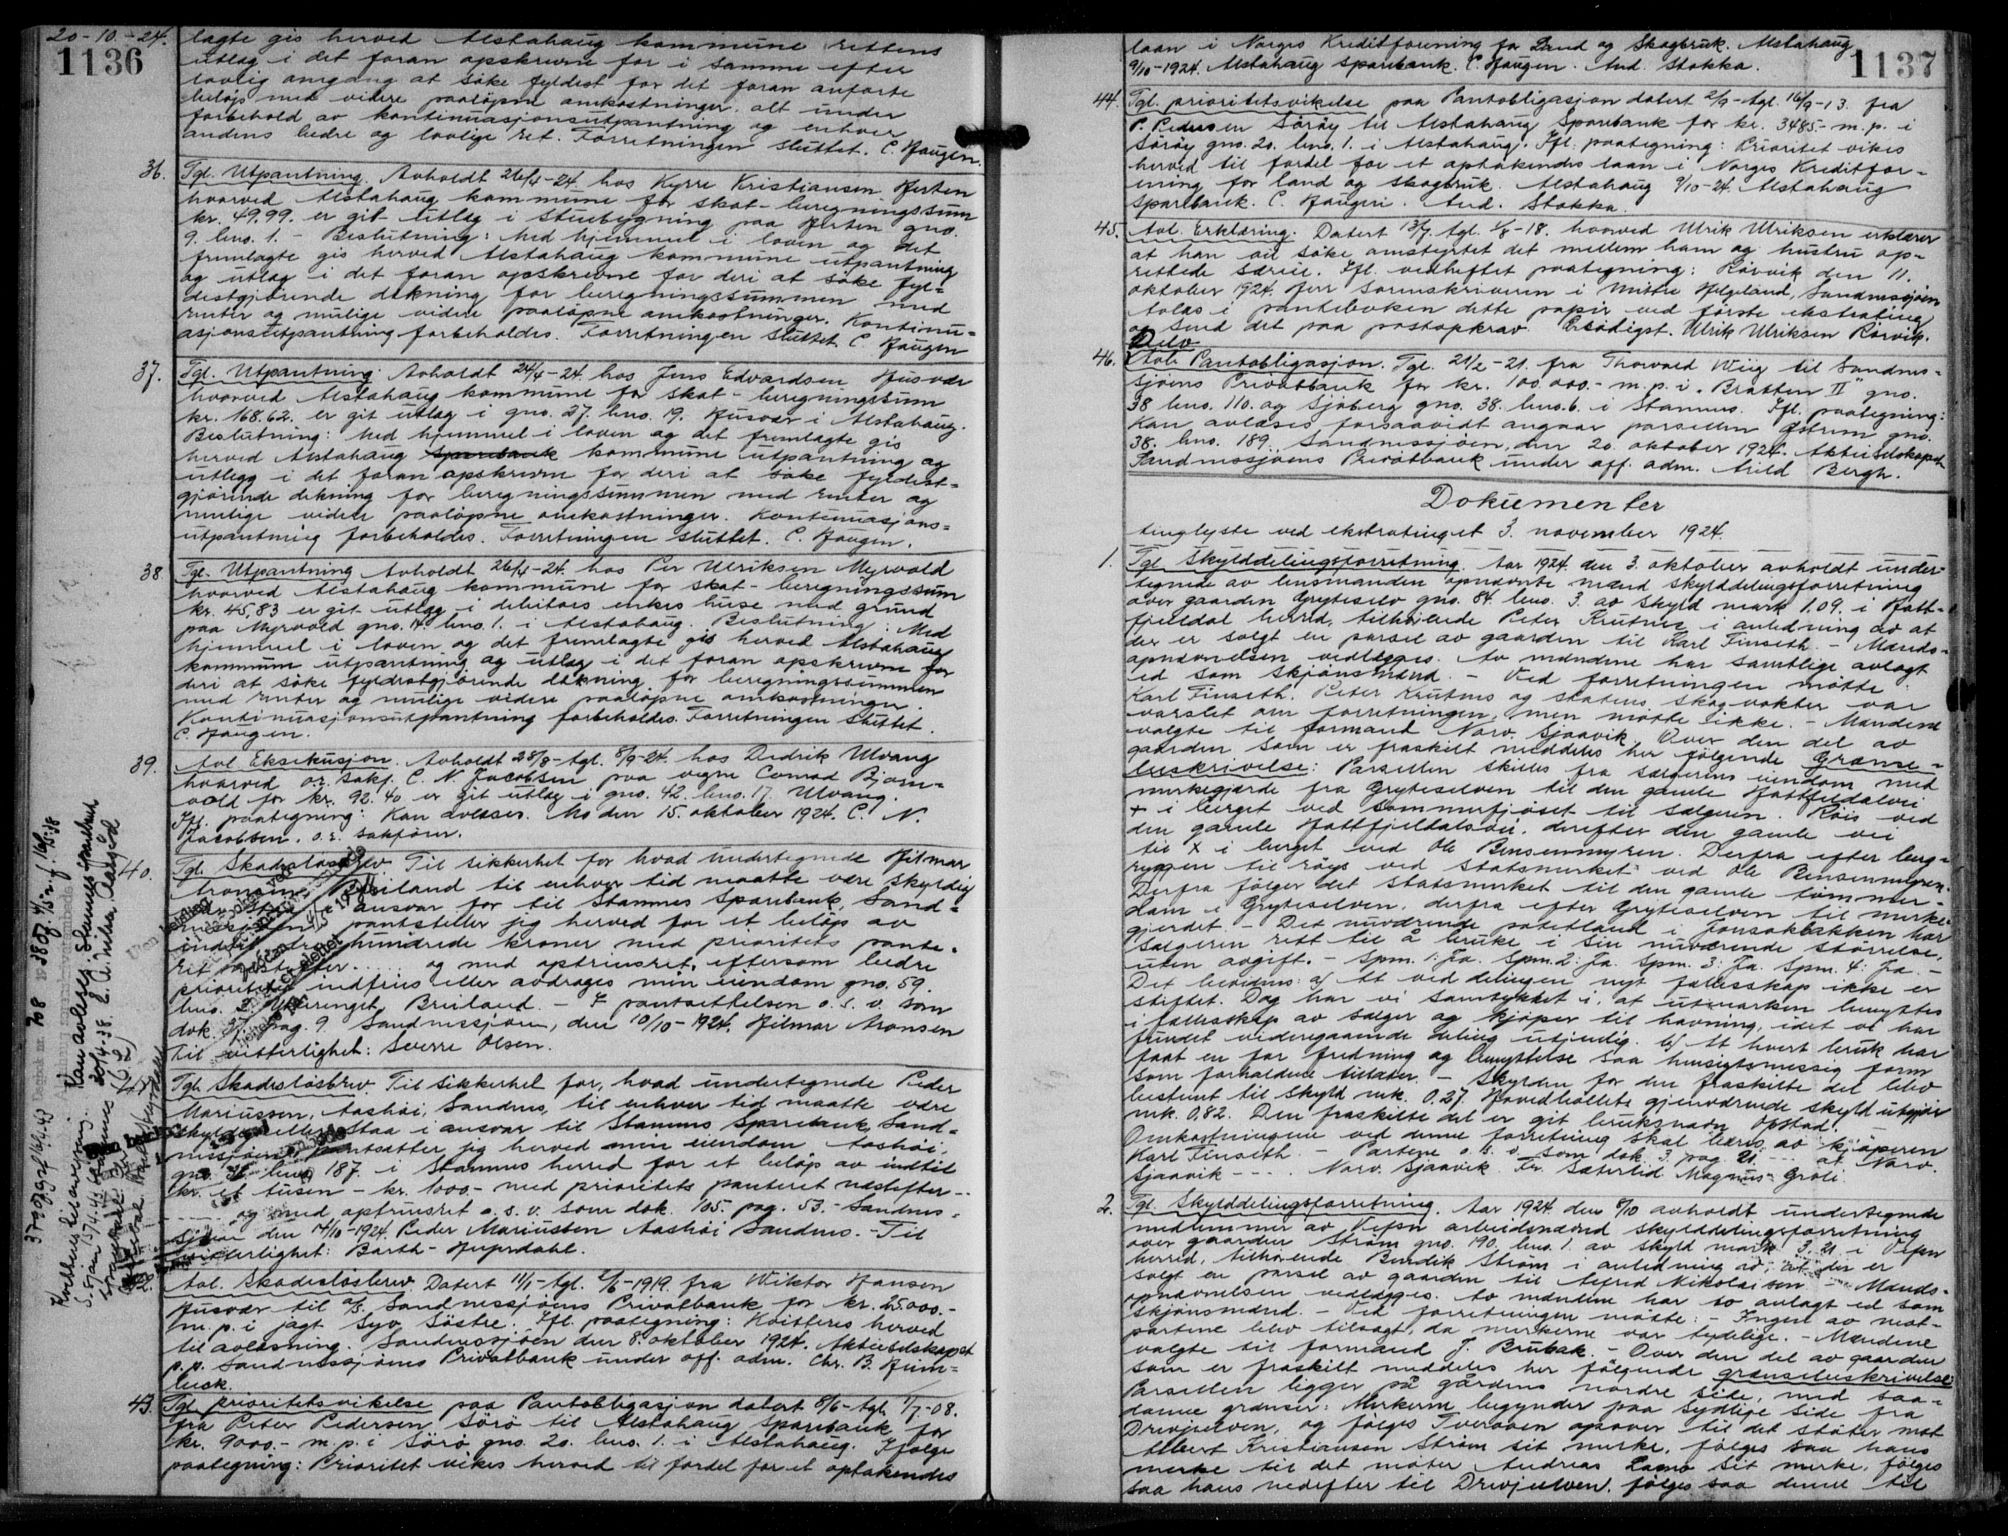 20-10-24.
1136
lagte gis herved Alstahaug kommune rettens
utlæg i det foran opskrevne for i samme efter
lovlig omgang at söke fyldest for det foran anförte
belöp med videre paalöpne omkostninger. alt under
forbehold av kontinuasjonsutpantning og enhver
andens bedre og lovlige ret. Forretningen sluttet. C. Haugen.
36. Tgl. Utpantning. Avholdt 26/4-24. hos Kyrre Kristiansen Hesten
hvorved Alstahaug kommune for skat-beregningssum
kr. 49,99. er git utlæg i stuebygning paa Hesten gno.
9. bno. 1. - Beslutning: Med hjemmel i loven og det
fremlagte gis herved Alstahaug kommune utpantning
og utlæg i det foran opskrevne for deri at söke fyl-
destgjörende dekning for beregningssummen med
renter og mulige videre paalöpne omkostninger. Kontinu-
asjonsutpantning forbeholdes. Forretningen sluttet. C. Haugen
37. Tgl. Utpantning. Avholdt 24/4-24. hos Jens Edvardsen Husvær
hvorved Alstahaug kommune for skat-beregningssum
kr. 168.62. er git utlæg i gno. 27. bno. 19. Husvær i Alstahaug.
Beslutning: Med hjemmel i loven og det fremlagte gis
herved Alstahaug Sparebank kommune utpantning og
utlegg i det foran opskrevne for deri at söke fyldest-
gjörende dekning for beregningssummen med renter og
mulige videre paalöpne omkostninger. Kontinuasjons-
utpantning forbeholdes. Forretningen sluttet. C. Haugen.
38. Tgl. Utpantning Avholdt 26/4-24. hos Per Ulriksen Myrvold
hvorved Alstahaug kommune for skat-beregningssum
kr. 45,83 er git utlæg i debitors enkes huse med grund
paa Myrvold gno. 14. bno. 1. i Alstahaug. Beslutning: Med
hjemmel i loven og det fremlagte gis herved Alstahaug
kommune utpantning og utlæg i det foran opskrevne for
deri at söke fyldestgjörende dekning for beregningssummen
med renter og mulige videre paalöpne omkostninger.
Kontinuasjonsutpantning forbeholdes. Forretningen sluttet.
C. Haugen.
39. Avl. Eksekusjon. Avholdt 23/8-tgl. 8/9-24. hos Dedrik Ulvang
hvorved o.r. sakf. C. N. Jacobsen paa vegne Conrad Bjorn-
vold for kr. 92.40 er git utlæg i gno. 42. bno. 17. Ulvang.
Ifl. paategning: Kan avlæses. Mo den 15. oktober 1924. C. N.
Jacobsen. o.r. sakförer.
40. Tgl. Skadeslösbrev Til sikkerhet for hvad undertegnede Hilmar
Aronsen Breiland til enhver tid maatte være skyldig
ansvar for til Stamnes Sparebank, Sand-
pantsetter jeg herved for et belöp av
hundrede kroner med prioritets pante-
ret næstefter..... og med optrinsret, eftersom bedre
prioriteter indfries eller avdrages min eiendom gno. 59.
bno. 3. Breiland. - I pantsettelsen o. s. v. som
dok. pag. 9. Sandnessjöen, den 10/10-1924. Hilmar Aronsen
Til vitterlighet: Sverre Olsen.
41. Tgl. Skadeslösbrev. Til sikkerhet for, hvad undertegnede Peder
Mariussen, Aashöi, Sandnes, til enhver tid maatte være
skyldig eller staa i ansvar til Stamnes Sparebank, Sand-
nessjöen, pantsætter jeg herved min eiendom Aashöi,
gno. bno. 187. i Stamnes herred for et belöp av indtil
kr. et tusen - kr. 1000.- med prioritets panteret næstefter-..
..... og med optrinsret o.s.v. som dok. 105. pag. 53. - Sandnes-
sjöen den 14/10-1924. Peder Mariussen Aashöi Sandnes. - Til
vitterlighet: Barth-Hejerdahl.
42. Avl. Skadeslösbrev. Datert 11/1-tgl. 2/6-1919. fra Wiktor Hansen
Husvær til a/s. Sandnessjöens Privatbank for kr. 25000.-
m. p. i jagt Syv Söstre. Ifl. paategning: Kvitteres herved
til avlæsning. Sandnessjöen den 8. oktober 1924. Aktieselskapet
p.p. Sandnessjöens Privatbank under off. adm. Chr. B. Hum-
buck.
43. Tgl. prioritetsvikelse paa Pantobligasjon datert 8/6-tgl. 1/7-08.
fra Peter Pedersen Sörö til Alstahaug Sparebank for
kr. 9000.- m. p. i Sörö gno. 20. bno. 1. i Alstahaug. Ifölge
paategning: Prioritet vikes herved til fordel for et optakendes
1137
laan i Norges Kreditforening for Land og Skogbruk. Alstahaug
9/10-1924. Alstahaug Sparebank. C. Haugen. And. Stokka.
44. Tgl. prioritetsvikelse paa Pantobligasjon datert 2/9-tgl. 16/9-13. fra
P. Pedersen Söröy til Alstahaug Sparebank for kr. 3485.- m. p. i
Söröy gno. 20. bno. 1. i Alstahaug. Ifl. paategning: Prioritet vikes
herved til fordel for et optakendes laan i Norges Kreditfor-
ening for land og skogbruk. Alstahaug 9/10-24. Alstahaug
Sparebank. C. Haugen. And. Stokka.
45. Avl. Erklæring. Datert 13/7. tgl. 1/8-18. hvorved Ulrik Ulriksen erklærer
at han vil söke omstyrtet det mellem ham og hustru op-
rettede særeie. Ifl. vedheftet paategning: Rövvik den 11.
oktober 1924. Herr Sorenskriveren i Mittre Helgeland, Sandnessjöen
Avlæs i pantebøken dette papir ved förste ekstrating
og send det paa postopkrav. Erbödigst. Ulrik Ulriksen Rörvik.
Delv
46. Avl. Pantobligasjon. Tgl. 21/2-21. fra Thorvald Wiig til Sandnes-
sjöens Privatbank for kr. 100.000.- m. p. i "Bratten II" gno.
38 bno. 110. og Sjöberg gno. 38. bno. 6. i Stamnes. Ifl. paategning:
Kan avlæses forsaavidt angaar parsellen gno.
38. bno. 189. Sandnessjöen, den 20. oktober 1924. Aktieselskapet
Sandnessjöens Privatbank under off. adm. Arild Bergh.
Dokumenter
tinglyste ved ekstratinget 3. november 1924.
1. Tgl. Skylddelingsforretning. Aar 1924. den 3. oktober avholdt under-
tegnede av lensmanden opnævnte mænd skylddelingsforretning
over gaarden Gryteselv gno. 84. bno. 3. av skyld mark 1,09. i Hatt-
fjelldal herred, tilhörende Peter Krutnes i anledning av at
der er solgt en parsel av gaarden til Karl Finseth. - Mænds-
opnævnelsen vedlægges. Av mændene har samtlige avlagt
ed som skjönsmænd. - Ved forretningen mötte:
Karl Finseth. Peter Krutnes og statens skogvokter var
varslet om forretningen, men mötte ikke. - Mændene
valgte til formand Norv. Sjaavik. Over den del av
gaarden som er fraskilt meddeles her fölgende Grænse-
beskrivelse: Parsellen skilles fra sælgerens eiendom med
merkegjerde fra Gryteselven til den gamle Hattfjeldalvei
+ i berget ved Sommerfjöset til sælgeren. Röis ved
den gamle Hattfjeldalsvei, derefter den gamle vei
til X i berget ved Ole Bensenmyren. Derfra efter berg-
ryggen til röys ved Statsmerket ved Ole Bensenmyren.
Derfra fölger det Statsmerket til den gamle tömmer-
dam i Gryteselven, derfra efter Gryteselven til merke-
gjerdet. - Det nuværende potetland i Jonsokbakken har
Sælgeren rett til å bruke i sin nuværende störrelse,
uten avgift. - Spm. 1: Ja. Spm. 2: Ja. Spm. 3: Ja. Spm. 4: Ja. -
Det bevidnes: a) At ved delingen nyt fællesskap ikke er
stiftet. Dog har vi samtykket i, at utmarken benyttes
i fællesskap av sælger og kjöper til havning, idet vi har
fundet videregaaende deling utjenlig. b) At hvert bruk har
faat en for fredning og benyttelse saa hensigtsmessig form
som forholdene tillater. - Skylden for den fraskilte del blev
bestemt til skyld mk. 0,27. Hovedbölets gjenværende skyld utgjör
mk. 0,82. Den fraskilte del er git bruksnavn Opstad.
Omkostningene ved denne forretning skal bæres av kjöperen
Karl Finseth. - Partene o. s. v. som dok. 3. pag. 21 - - at Norv.
Sjaavik - - - . Norv. Sjaavik. Fr. Sæterlid. Magnus Groli.
2. Tgl. Skylddelingsforretning. Aar 1924. den 8/10 avholdt undertegnede
medlemmer av Vefsn arbeidsnævnd skylddelingsforretning
over gaarden Ström gno. 190. bno. 1. av skyld mark 3,21 i Vefsn
herred, tilhörende Bendik Ström i anledning av, at der er
solgt en parsel av gaarden til Alfred Nikolaisen - Mænds-
opnævnelsen vedlægges. Av mændene har to avlagt ed som
skjönsmænd. - Ved forretningen mötte: - Ingen av mot-
partene blev tilsagt, da merkerne var tydelige. - Mændene
valgte til formand J. Brubak. - Over den del av gaarden
som er fraskilt meddeles her fölgende grænsebeskrivelse:
Parsellen ligger på gårdens nordre side, med saa-
danne grænser: Merkerne begynder paa sydlige side fra
Drevjeelven, og fölges Tveraaen opover til det støter mot
Albert Kristiansen Ström sit merke, fölges saa hans
merke til det möter Andreas Lamo sit merke, fölges
saa hans nedefter til Drevjeelven. fölges saa denne til